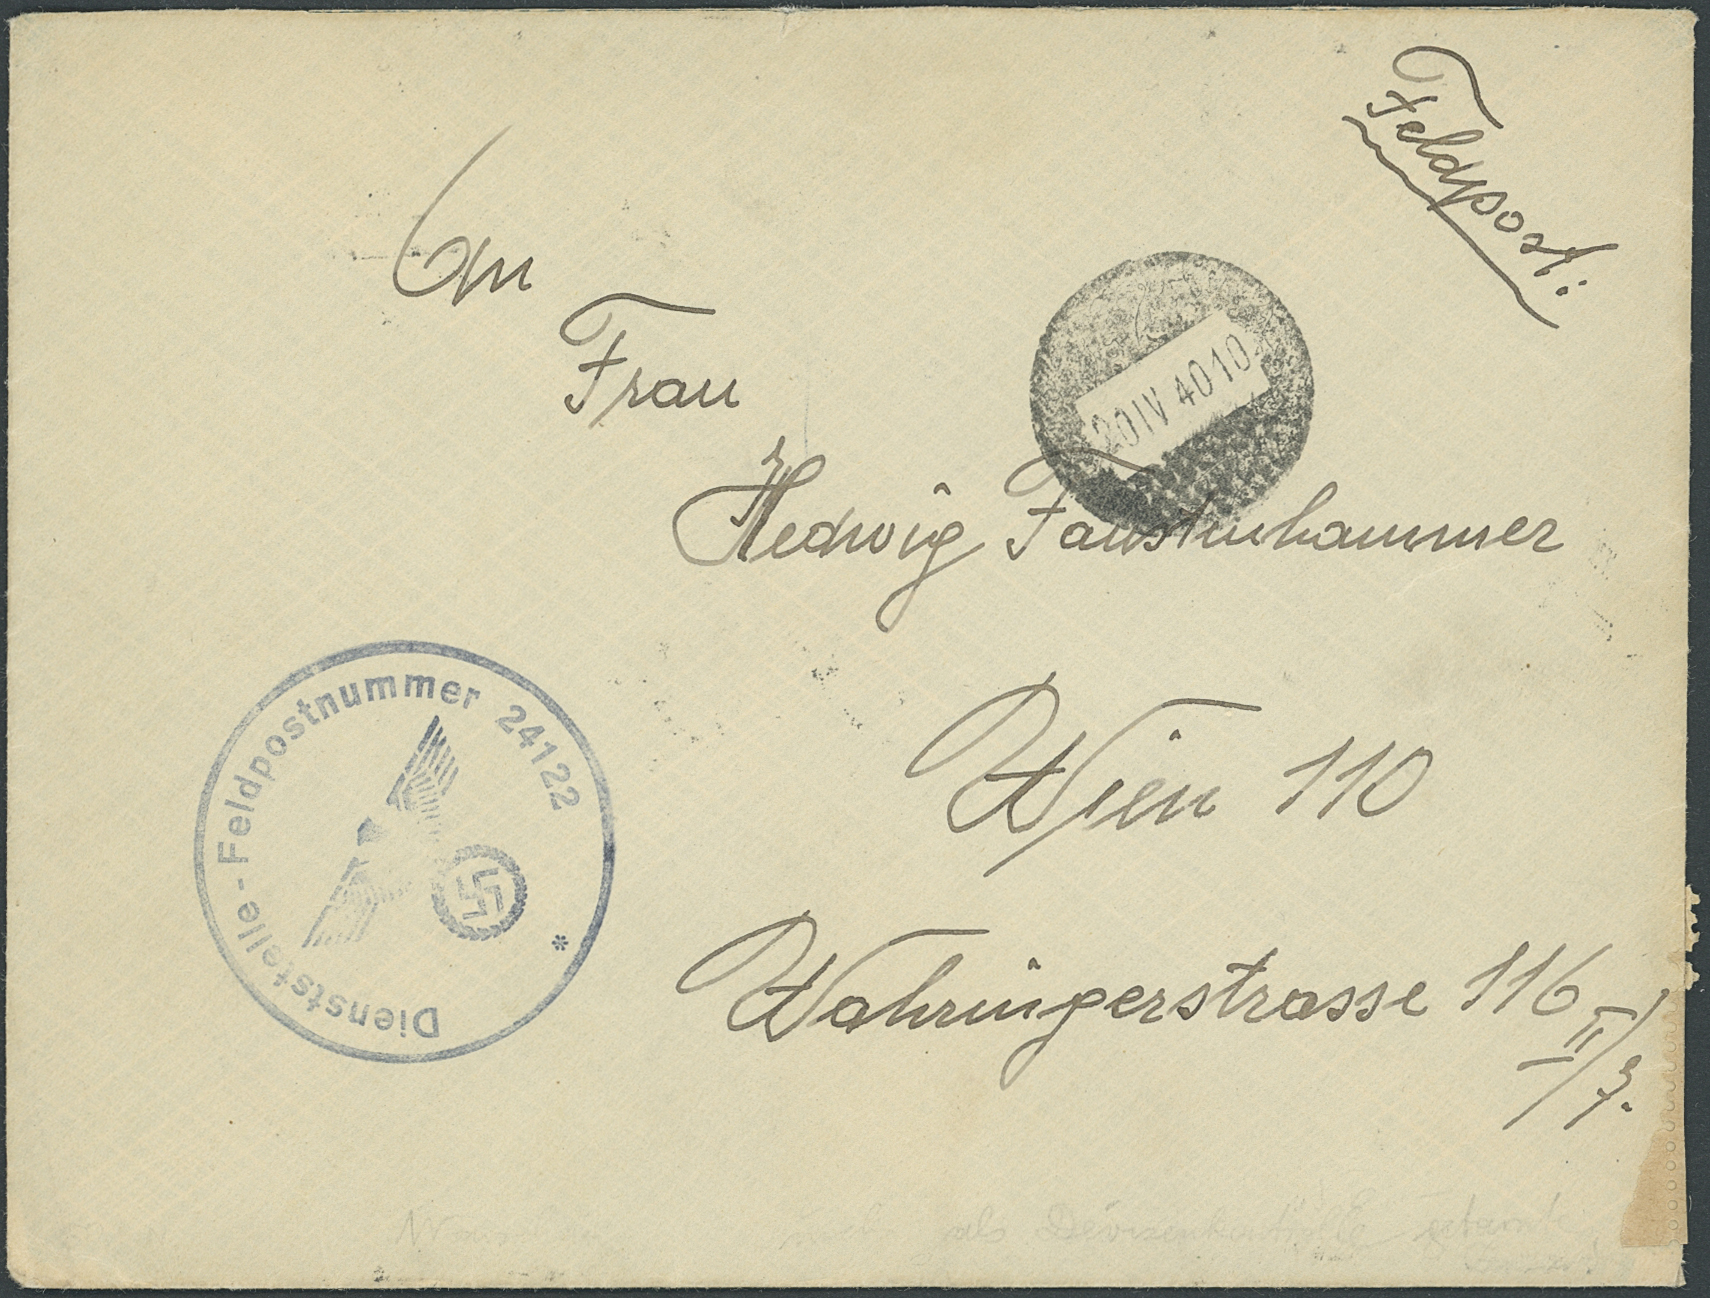 Feldpost:
An
Frau
20 IV 40 10
Hedwig Faustenhammer
Wien 110
Wahringerstrasse 116 II/7.
Dienststelle - Feldpostnummer 24122 *
als Devisenkontrolle